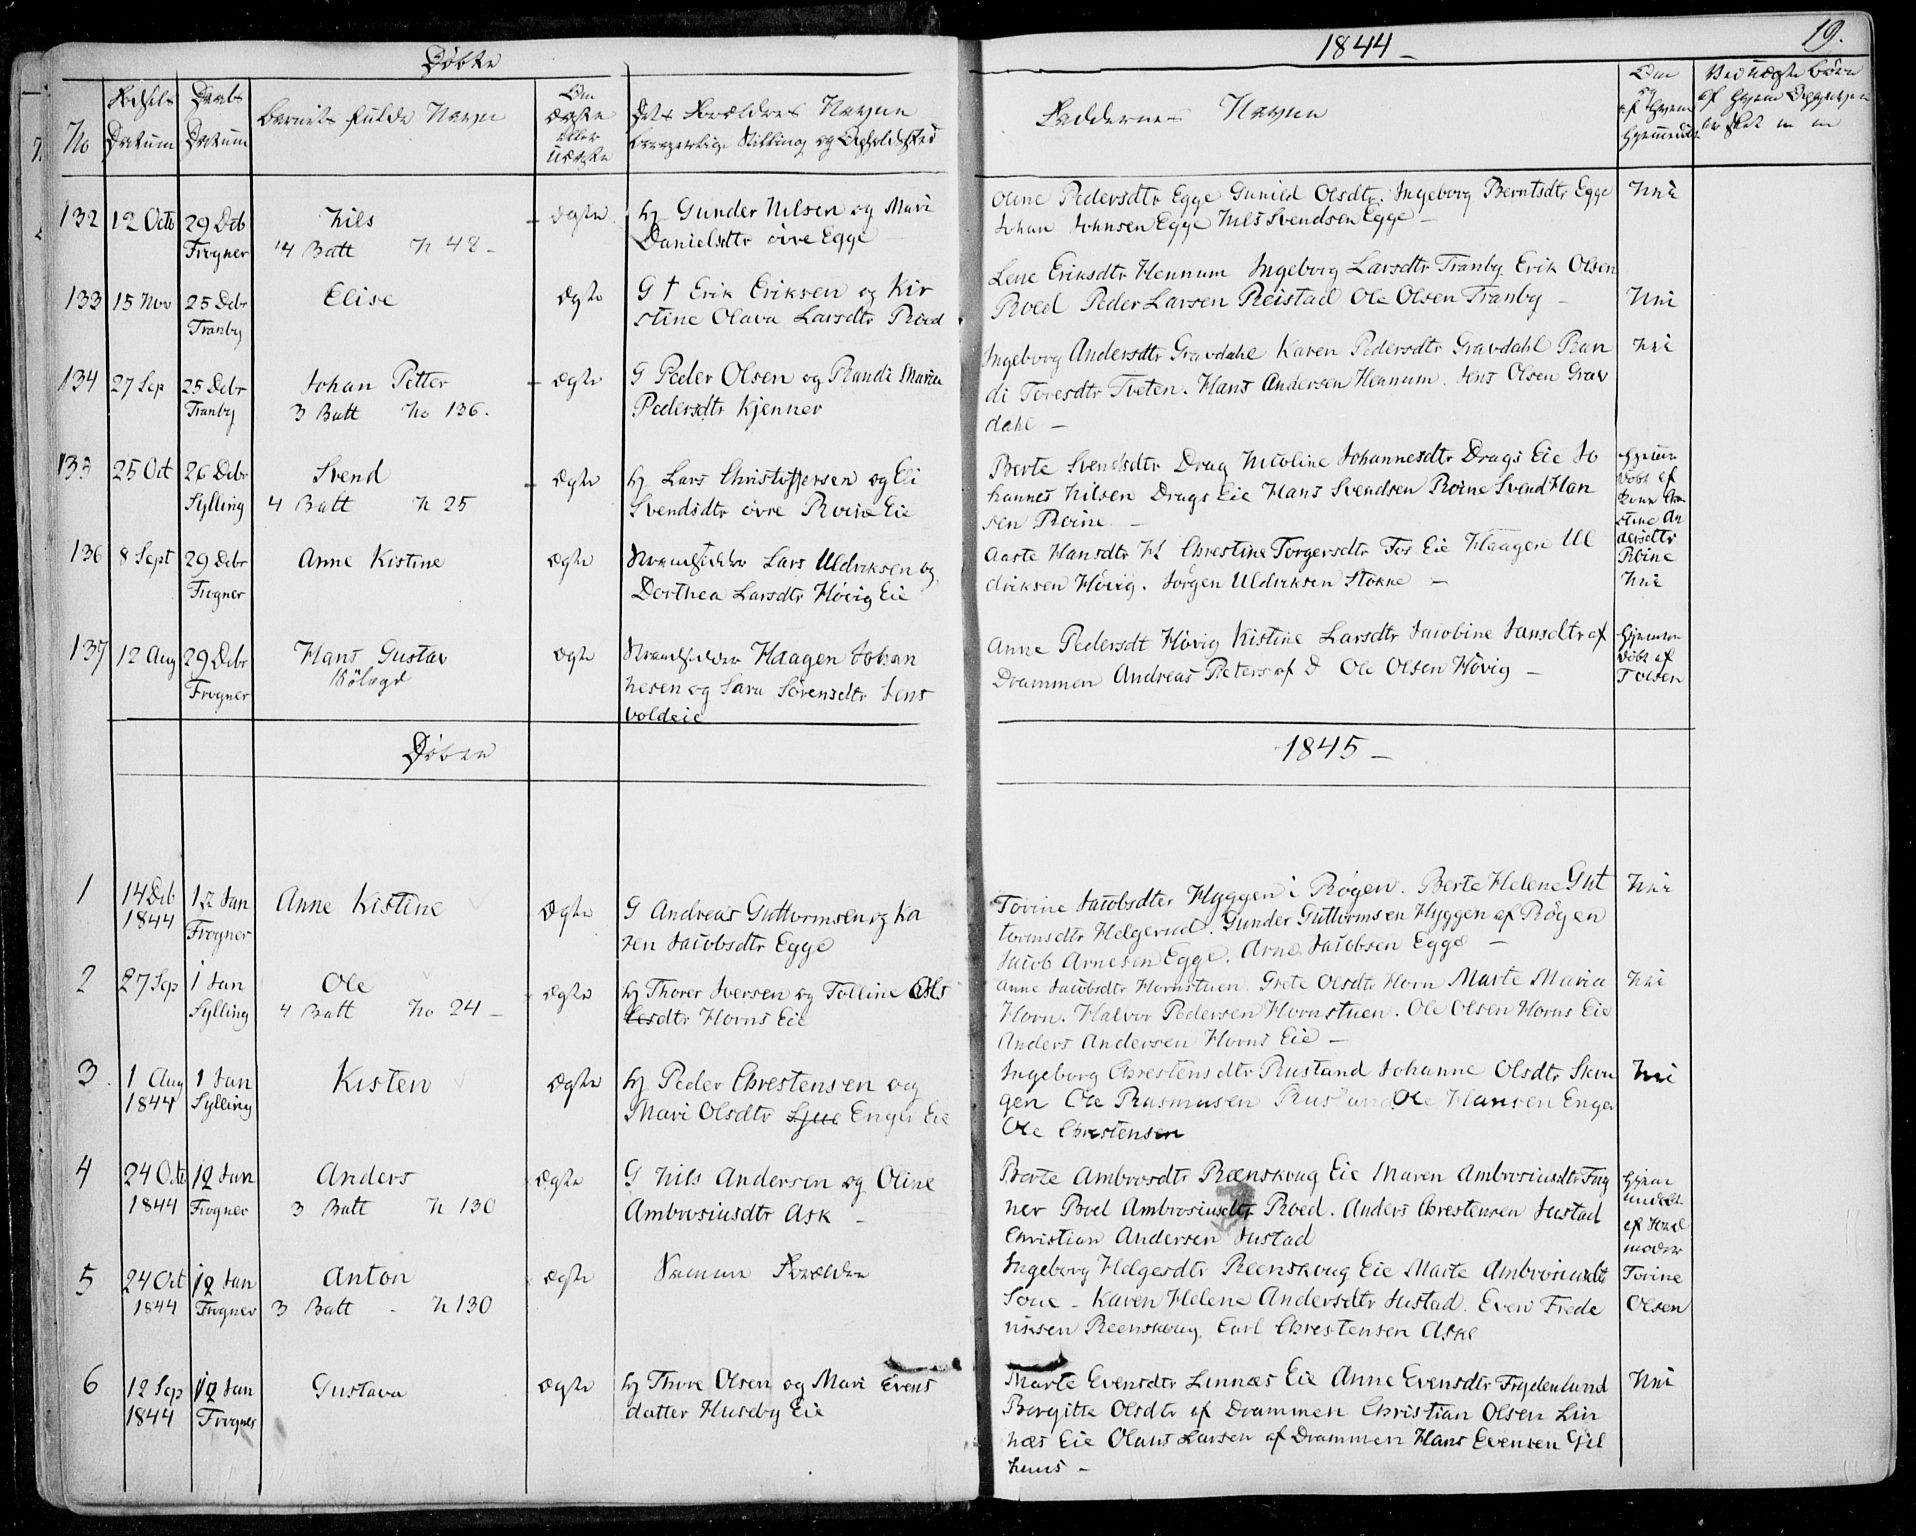 Döbte
1844 -
19.
No
Fødsels Datum
Daabs Datum
Barnets fulde Navn
Om Ægte eller Uægte
Dets Forældres Navne borgerlige Stilling og Opholdsted
Faddernes Navne
Om og af hvem hjemmedøbt
132 12 Octb 29 Dcb Frogner
Nils
4 Batt N 48 -
Ægte
Gunder Nilsen og Mari
Danielsdtr övre Egge
Oline Pedersdtr Egge Gunild Olsdtr. Ingeborg Berntsdtr Egge
Johan Johnsen Egge Nils Svendsen Egge -
Nei
133 15 Nov 25 Debr Tranby
Elise
Ægte
G † Erik Eriksen og Kir
stine Olava Larsdtr Roed
Lene Eriksdtr Hennum Ingeborg Larsdtr Tranby Erik Olsen
Roed Peder Larsen Reistad Ole Olsen Tranby -
Nei
134 27 Sep 25 Debr Tranby
Johan Petter
3 Batt No 136.
Ægte
G Peder Olsen og Randi Maria
Pedersdtr Kjenner
Ingeborg Andersdtr Gravdahl Karen Pedersdtr Gravdahl Ran
di Toresdtr Tveten. Hans Andersen Hennum. Jens Olsen Grav
dahl -
Nei
133 25 Oct 26 Debr Sylling
Svend
4 Batt N 25
Ægte
Lars Christoffersen og Eli
Svendsdtr övre Roine Eie
Berte Svendsdtr Drag Nicoline Johannesdtr Drags Eie Jo
hannes Nilsen Drags Eie Hans Svendsen Roine Svend Han
sen Roine. -
Hjemme
döbt af
stine An
dersdtr
Roine
136 8 Sept 29 Debr Frogner
Anne Kistine
Ægte
Strandsidder Lars Uldriksen og
Dorthea Larsdtr Hövig Eie
Aaste Hansdtr Christine Torgersdtr Fos Eie Haagen Ul
driksen Hövig. Jörgen Uldriksen Stokne -
Nei
137 12 Aug 29 Debr Frogner
Hans Gustav
Ægte
Strandsidder Haagen Johan
nesen og Sara Sörensdtr Jens
voldeie
Anne Pedersdt Hövig Kistine Larsdtr Jacobine Jansdtr af
Drammen Andreas Peters af D Ole Olsen Hövig -
Hjemme
döbt af
T Olsen
Döbte
1845 -
1 14 Deb 1844 12 Jan Frogner
Anne Kistine
Ægte
G Andreas Guttormsen og Ka
ren Jacobsdtr Egge
Torine Jacobsdtr Hyggen i Rögen. Berte Helene Gut
tormsdtr Helgerud. Gunder Guttormsen Hyggen af Rögen
Jacob Arnesen Egge. Arne Jacobsen Egge -
Nei
2 27 Sep 1 Jan Sylling
Ole
4 Batt No 24 -
Ægte
Thorer Iversen og Tolline Ols
dtr Horns Eie
Anne Jacobsdtr Hornstuen. Grete Olsdtr Horn Marte Maria
Horn. Halvor Pedersen Hornstuen. Ole Olsen Horns Eie
Anders Andersen Horns Eie -
Nei
3 1 Aug 1844 1 Jan Sylling
Kisten
Ægte
Peder Chrestensen og
Mari Olsdtr Enger Eie
Ingeborg Chrestensdtr Rustand Johanne Olsdtr Skru
gen Ole Rasmusen Rustand Ole Hansen Enger
Ole Chrestensen
Nei
4 24 Octb 1844 12 Jan Frogner
Anders
3 Batt N 130
Ægte
G Nils Andersen og Oline
Ambrosiusdtr Ask -
Berte Ambrosdtr Reenskoug Eie Maren Ambrosiusdtr Frog
ner Boel Ambrosiusdtr Roed. Anders Chrestensen Justad
Christian Andersen Justad
Hjem
medöbt
af Jord
moder
5 24 Oct 1844 12 Jan Frogner
Anton
3 Batt - N 130
Ægte
Samme Forældre
Ingeborg Helgesdtr Reenskoug Eie Marte Ambrosiusdt
Soue - Karen Helene Andersdtr Justad. Even Frede
riksen Reenskoug, Carl Chrestensen Aske
Torine
Olsen
6 12 Sep 1844 12 Jan Frogner
Gustava
Ægte
Thore Olsen og Mari Evens
datter Huseby Eie
Marte Evensdtr Linnæs Eie Anne Evensdtr Frydenlund
Bergitte Olsdtr af Drammen Christian Olsen Lin
næs Eie Olaus Larsen af Drammen Hans Evensen Gil
huus -
Nei